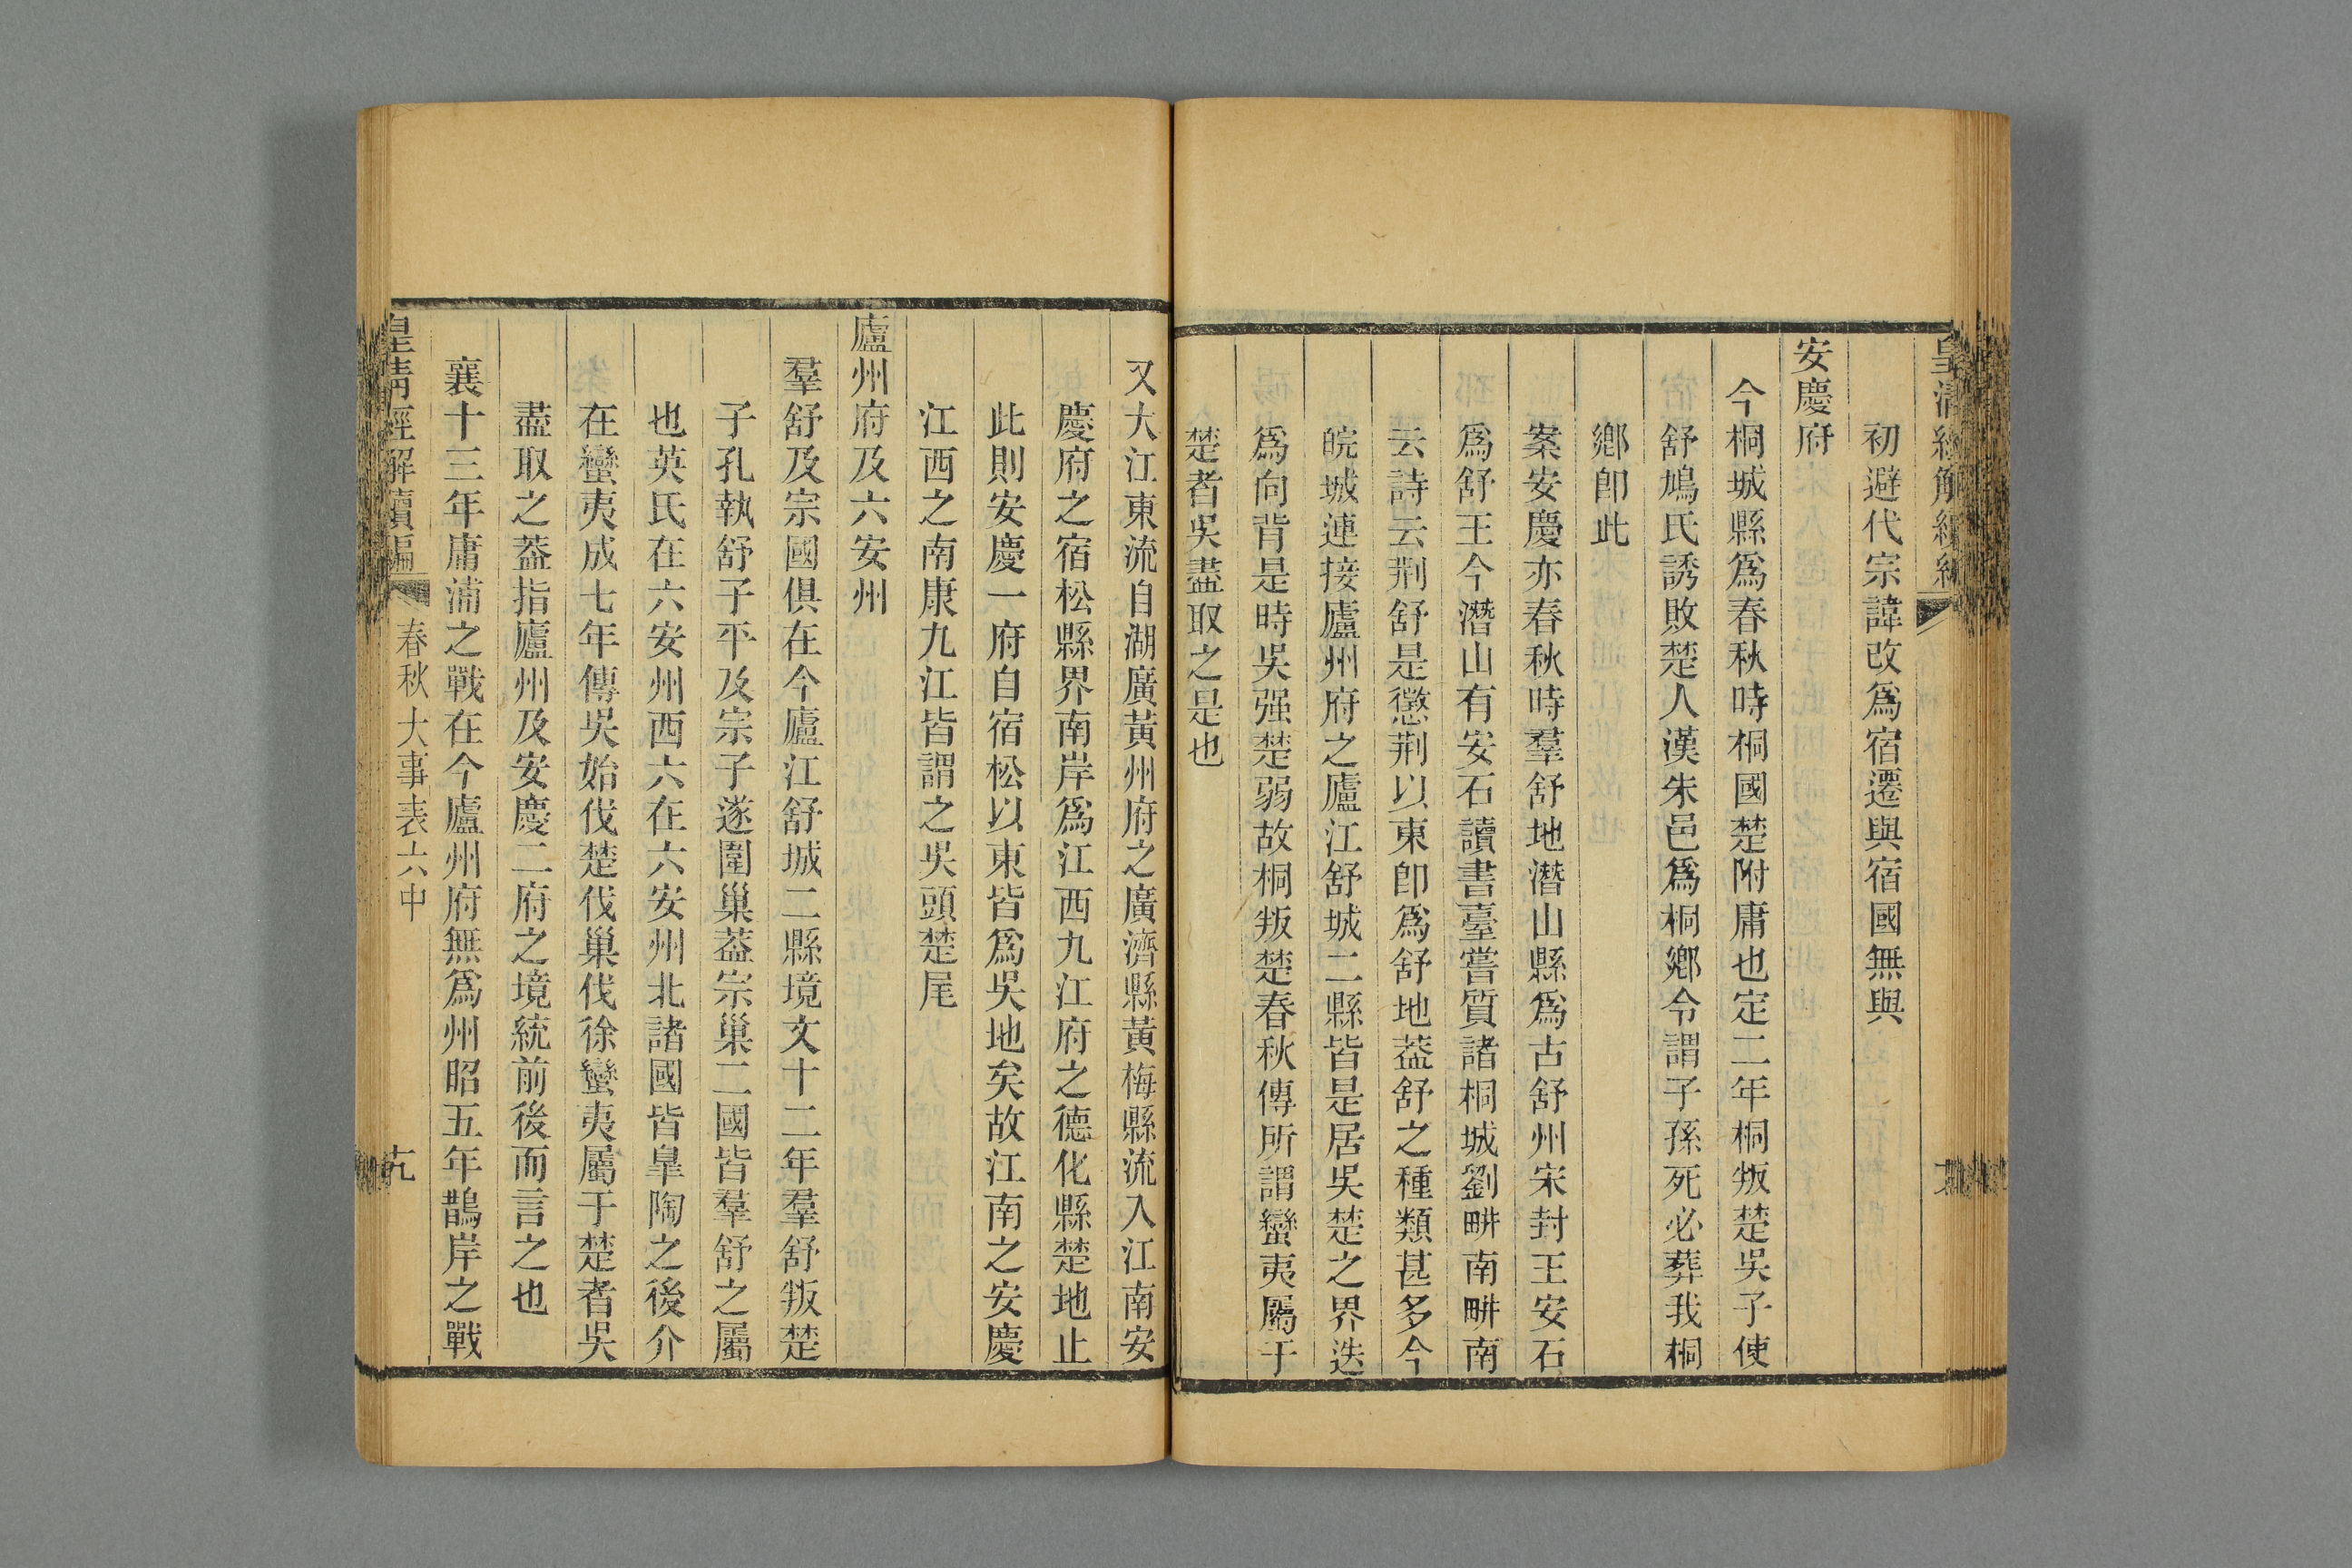 初避代宗諱改爲宿遷與宿國無與
安慶府
今桐城縣爲春秋時桐國楚附庸也定二年桐叛楚吳子使
舒鳩氏誘敗楚人漢朱邑爲桐鄉令謂子孫死必葬我桐
鄉卽此
案安慶亦春秋時羣舒地潛山縣爲古舒州宋封王安石
爲舒王今潛山有安石讀書臺嘗質諸桐城劉畊南畊南
云詩云荆舒是懲荆以東卽爲舒地葢舒之種類甚多今
皖城連接廬州府之廬江舒城二縣皆是居吳楚之界迭
爲向背是時吳强楚弱故桐叛楚春秋傳所謂蠻夷屬于
楚者吳盡取之是也
又大江東流自湖廣黃州府之廣濟縣黃梅縣流入江南安
慶府之宿松縣界南岸爲江西九江府之德化縣楚地止
此則安慶一府自宿松以東皆爲吳地矣故江南之安慶
江西之南康九江皆謂之吳頭楚尾
廬州府及六安州
羣舒及宗國俱在今廬江舒城二縣境文十二年羣舒叛楚
子孔執舒子平及宗子遂圍巢葢宗巢二國皆羣舒之屬
也英氏在六安州西六在六安州北諸國皆皐陶之後介
在蠻夷成七年傳吳始伐楚伐巢伐徐蠻夷屬于楚者吳
盡取之葢指廬州及安慶二府之境統前後而言之也
襄十三年庸浦之戰在今廬州府無爲州昭五年鵲岸之戰
皇清經解續編 春秋大事表六中